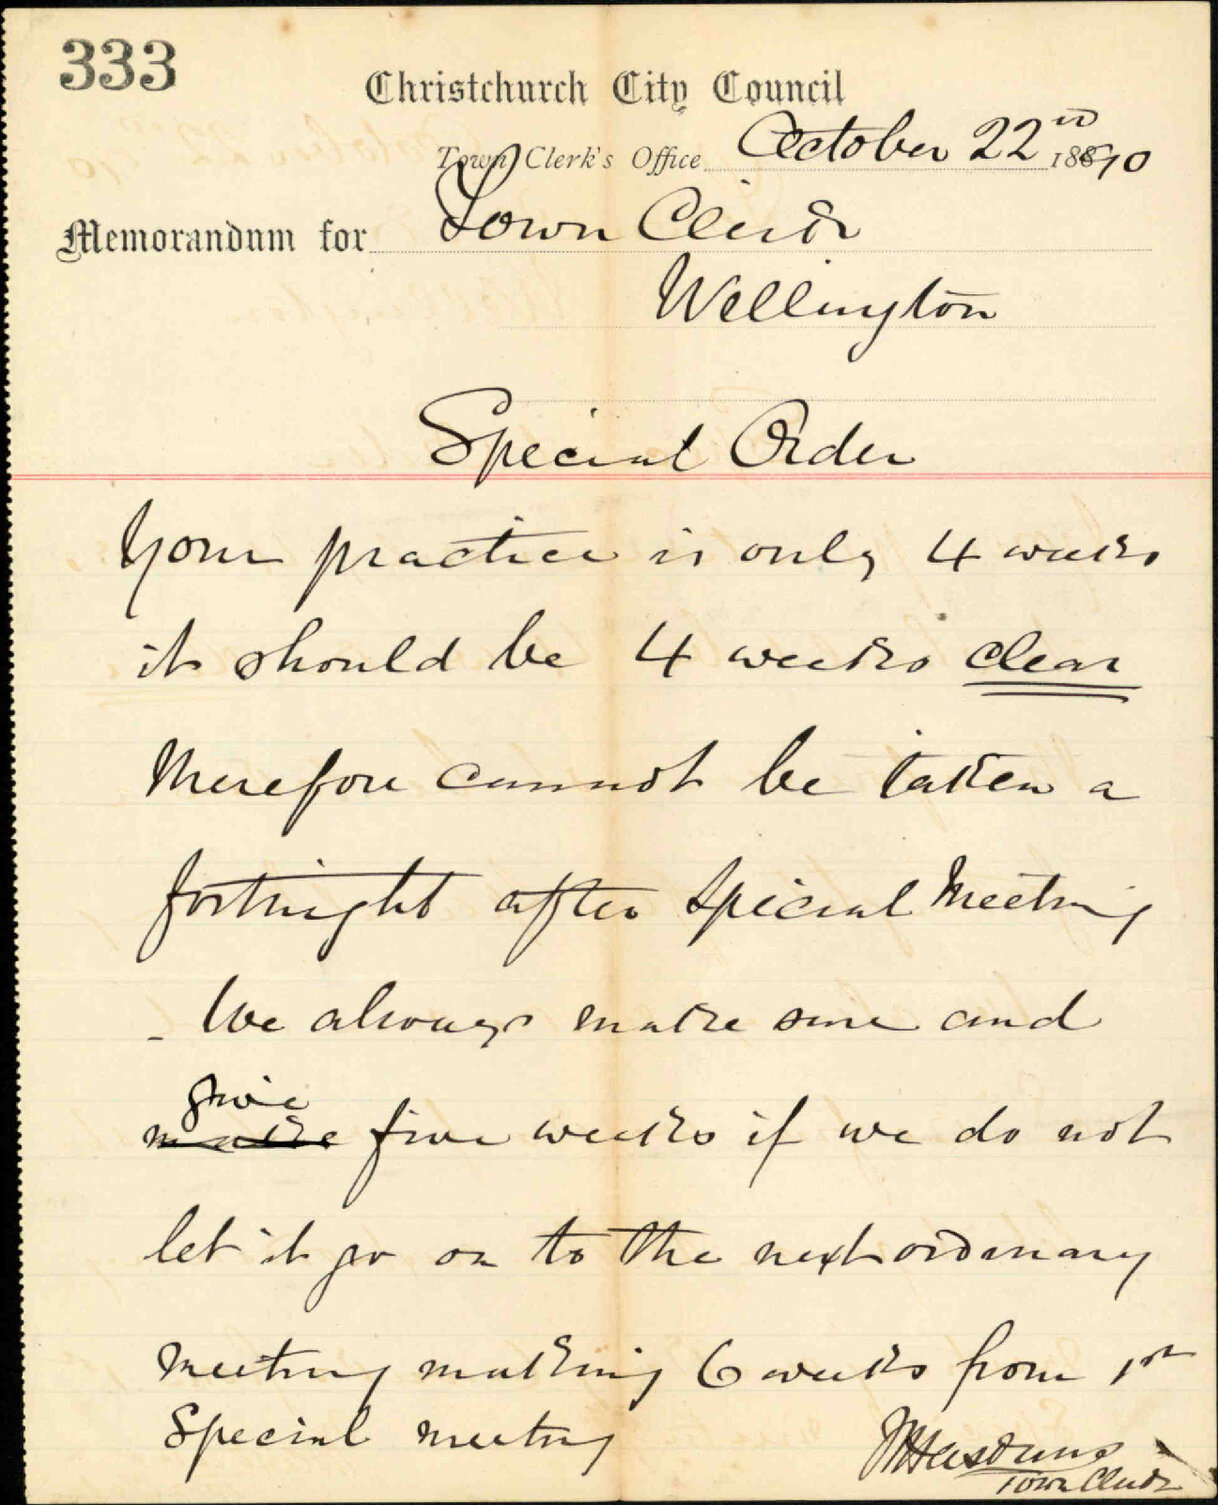 333
Christchurch City Council
Town Clerk's Office October 22nd 1890
Memorandum for Town Clerk
Wellington
Special Order
Your practice is only 4 weeks
it should be 4 weeks clear
therefore cannot be taken a
fortnight after special meeting
- We always make sure and
give
make five weeks if we do not
let it go on to the next ordinary
meeting making 6 weeks from 1st
Special meeting
Town Clerk